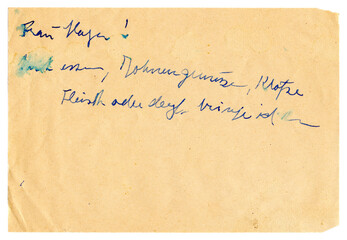 Frau Mayer!
essen, Bohnengemüse, Klopse
Fleisch oder dergl. bringe ich